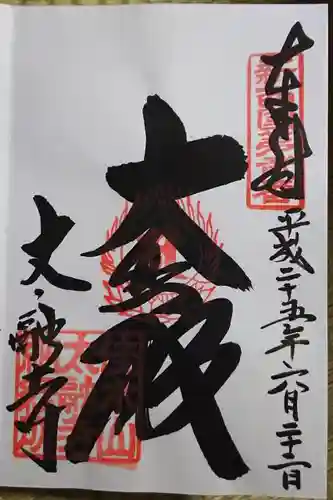 奉拝
平成二十五年六月二十二日
大悲殿
太融寺